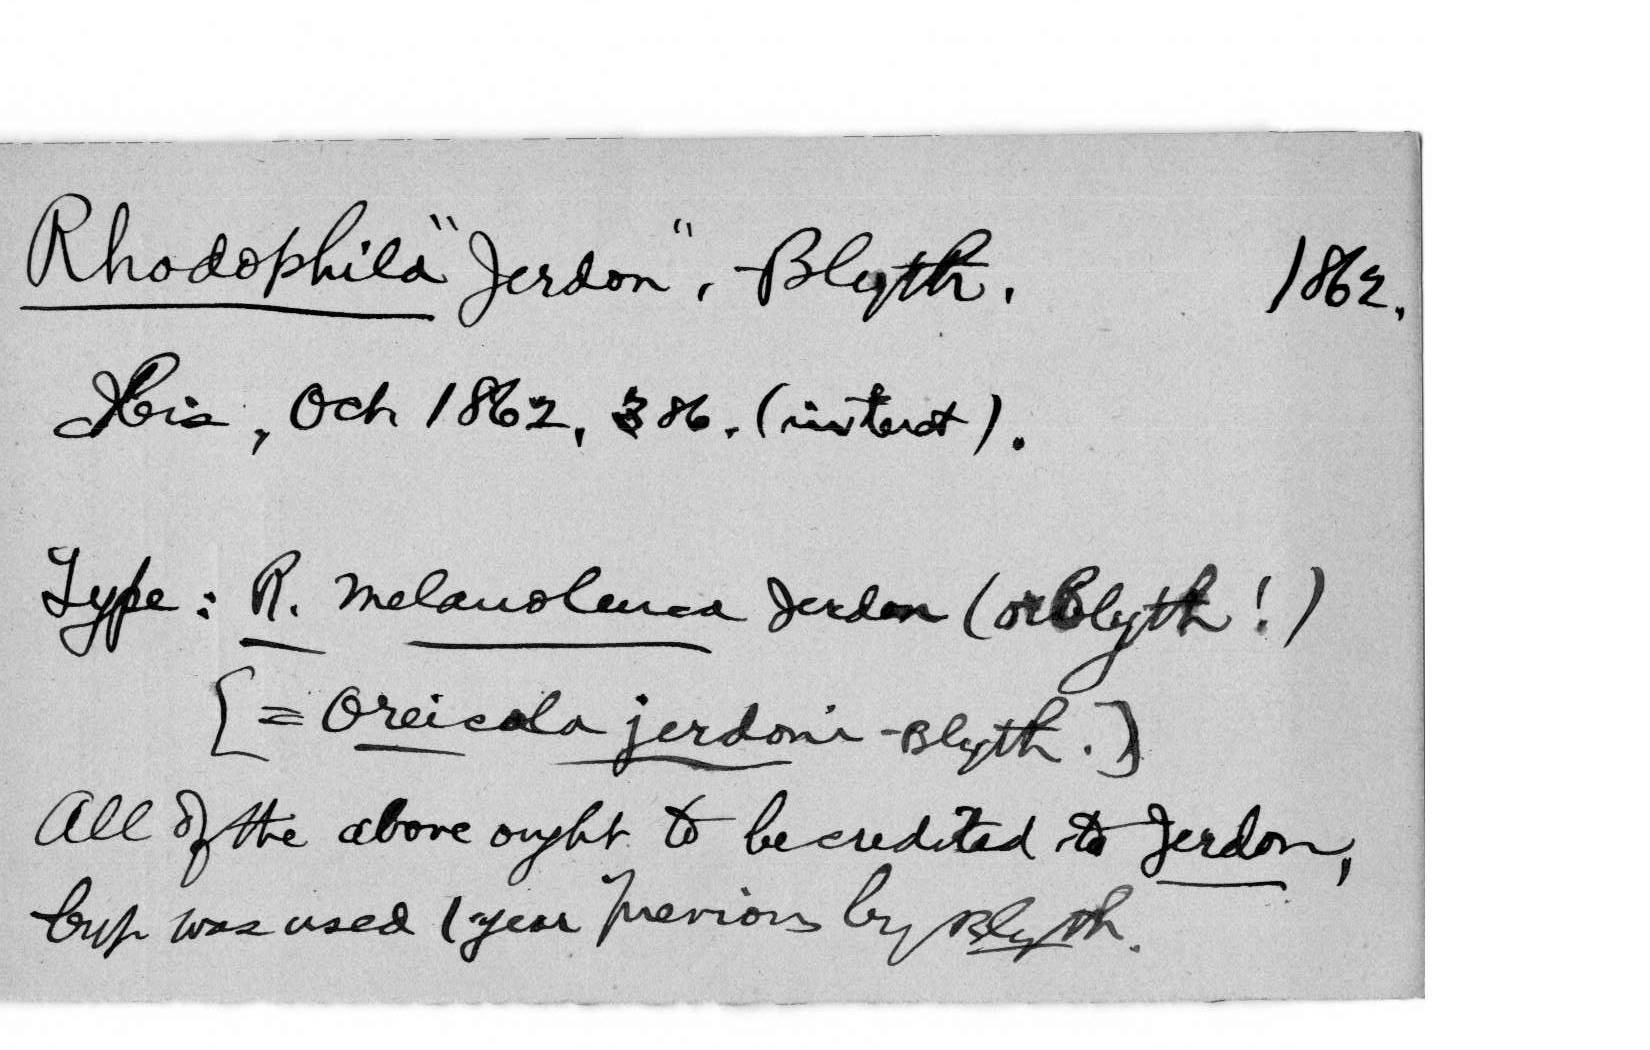 Rhodophila "Jerdon", Blyth. 1862.
Ibis, Oct 1862, 386. (in text).
Type: R. melanoleuca Jerdon (or Blyth!)
[= Oreicola jerdoni Blyth.]
All of the above ought to be credited to Jerdon,
but was used 1 year previous by Blyth.